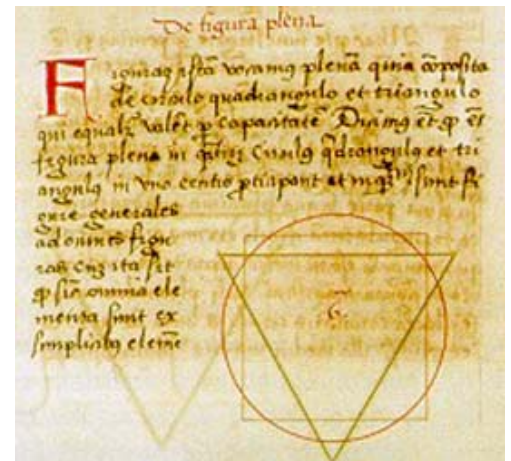 De figura plena
Figuraȝ istā vocamꝰ plenā quia cōposita
de circulo quadrangulo et triangulo
qui equalr̄ valet ꝑ capacitatē Dicimꝰ et̄ ꝙ
figura plena in circulꝰ qͣdrangulꝰ et tri
angulꝰ in vno centro ꝑticipant et sunt fi
gure generales
ad omnes figu
ras ita sit
ꝙ sic̄ omnia ele
menta sunt ex
simplicibꝰ elemē
6